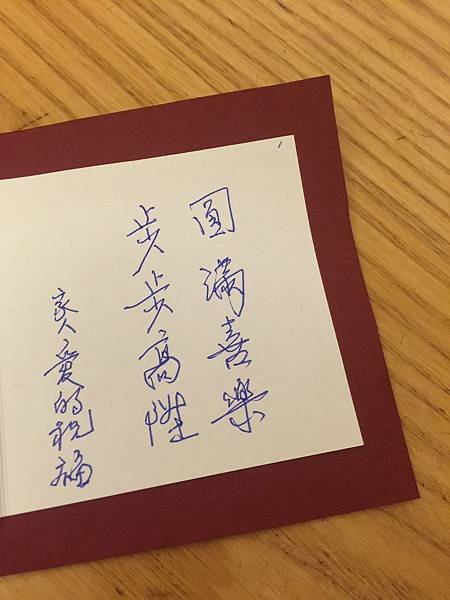 圓滿喜樂
步步高陞
愛的祝福